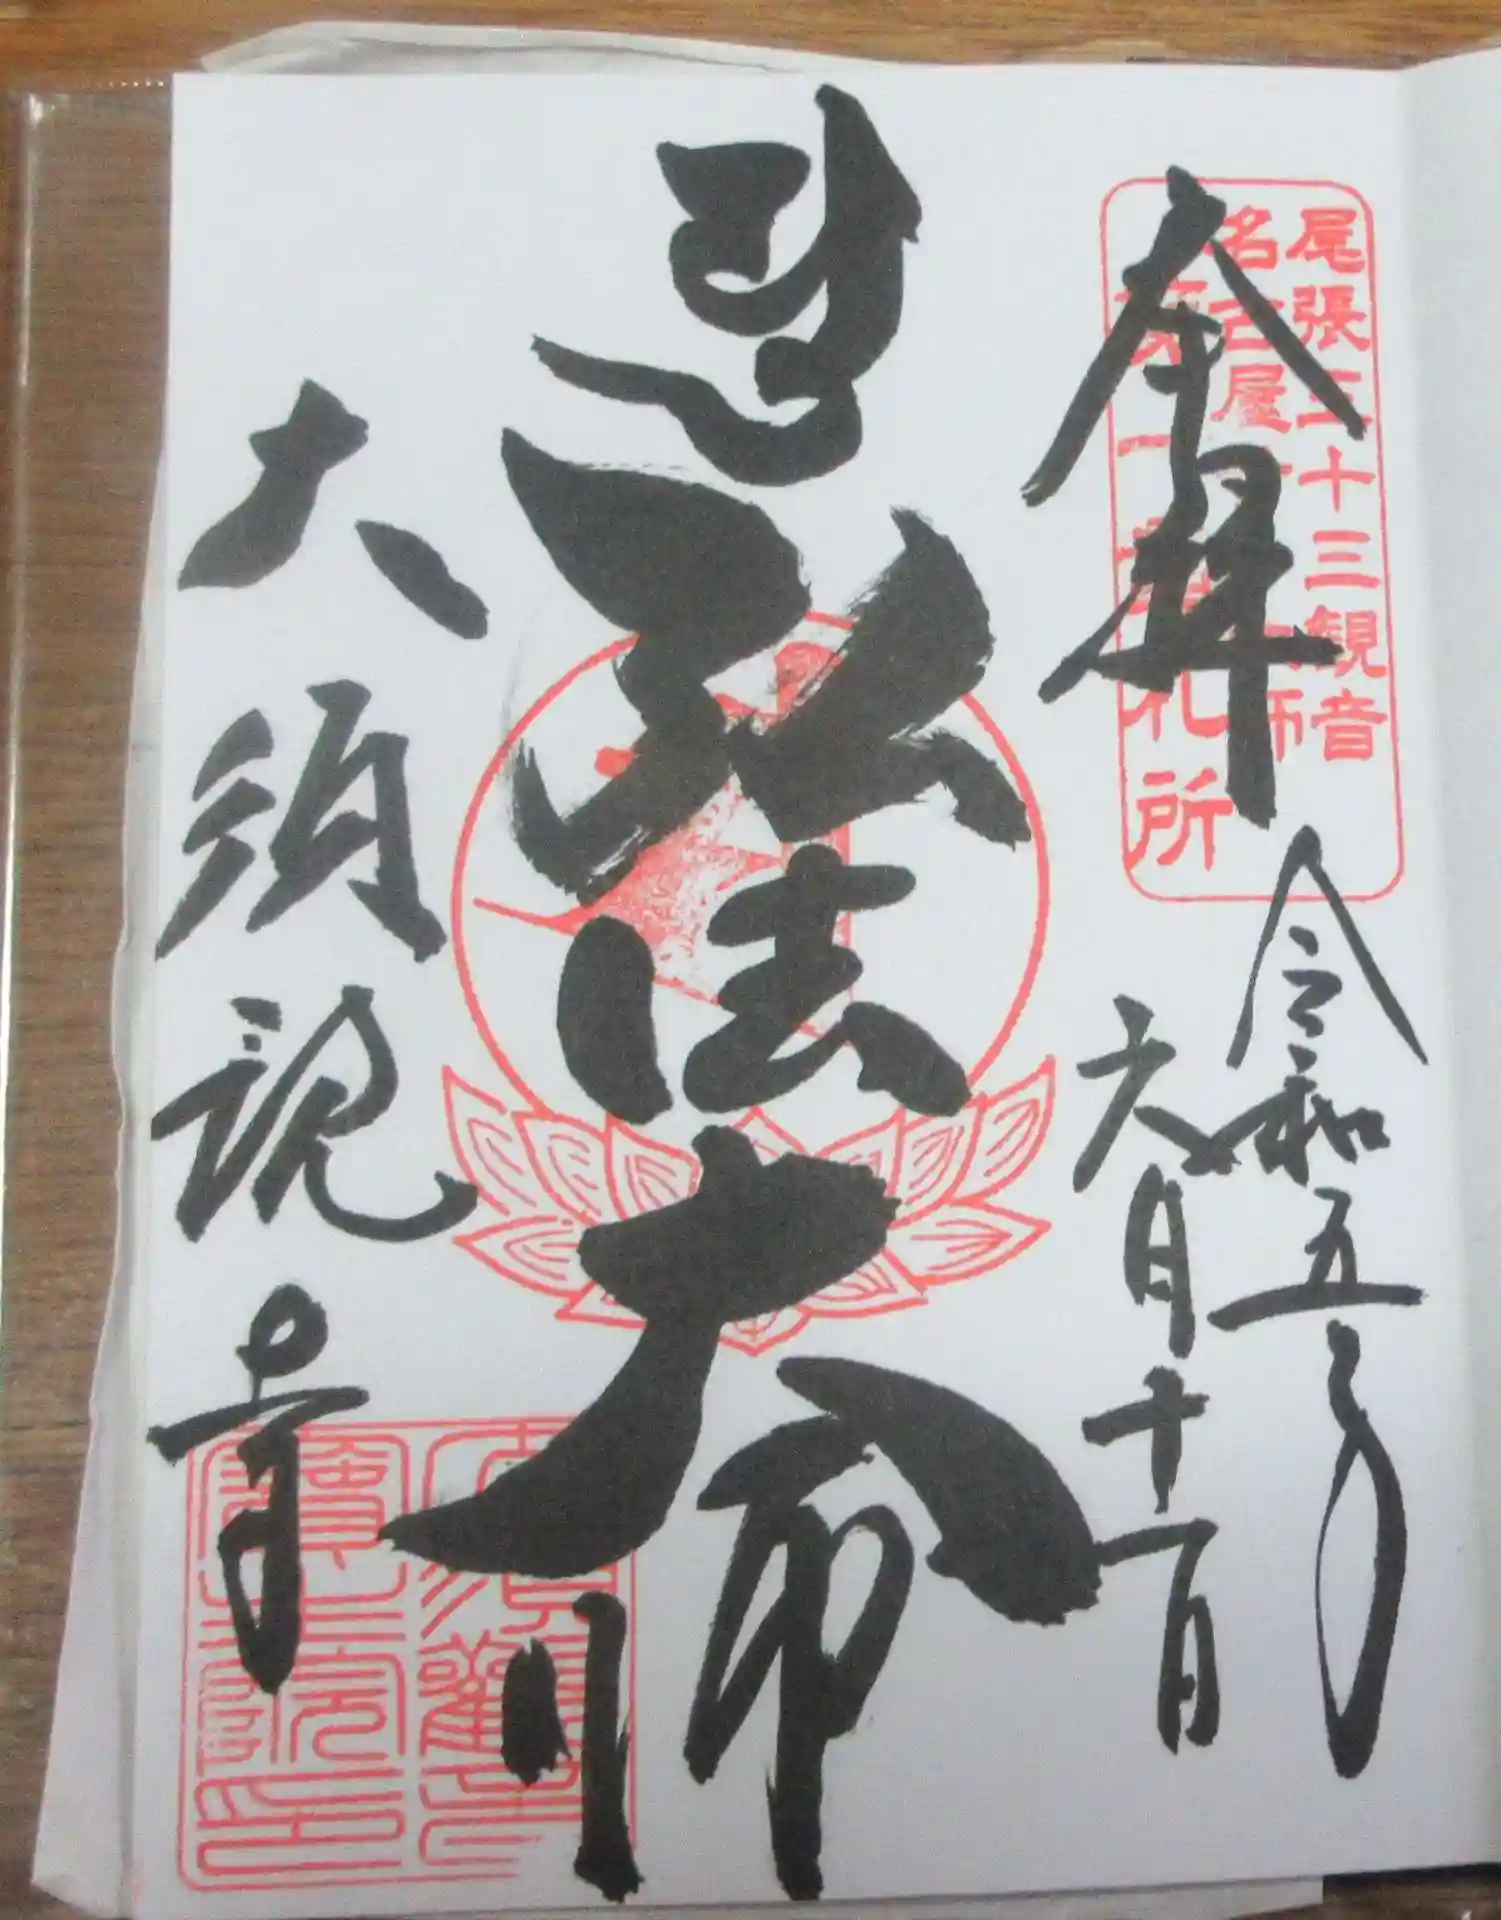 尾張三十三観音
名古屋
第一番札所
奉拝
令和五年
六月十一日
弘法大師
大須観音